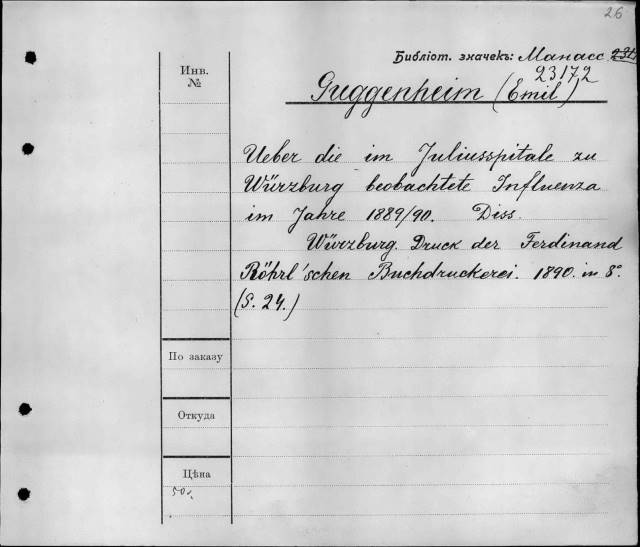 26
Библіот. значекъ: Манасс.
23172
Guggenheim (Emil)
Инв.
№
Ueber die im Juliusspitale zu
Würzburg beobachtete Influenza
im Jahre 1889/90. Diss.
Würzburg. Druck der Ferdinand
Röhrl'schen Buchdruckerei. 1890. in 8°.
(S. 24.)
По заказу
Откуда
Цѣна
50